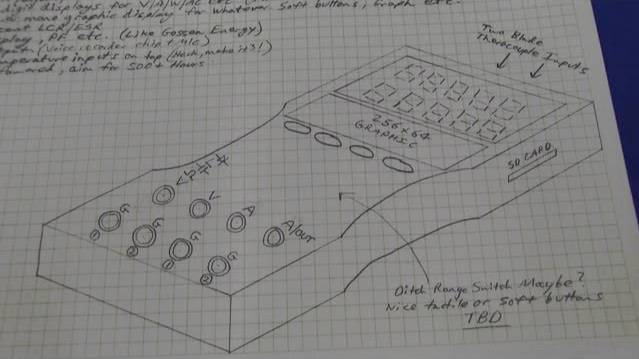 digit displays for V/A/W/AC etc
a mono graphic display for whatever. Soft buttons, Graph etc.
LCR/ESR
, PF etc. (Like Gossen Energy)
(voice recorder chip + mic)
inputs on top (Hack, make it 3!)
powered, aim for 500+ Hours
Two Blade
Thermocouple Inputs
256x64
GRAPHIC
SD CARD
V
A
A/out
G
G
G
G
Ditch Range Switch Maybe?
Nice tactile or soft buttons
TBD